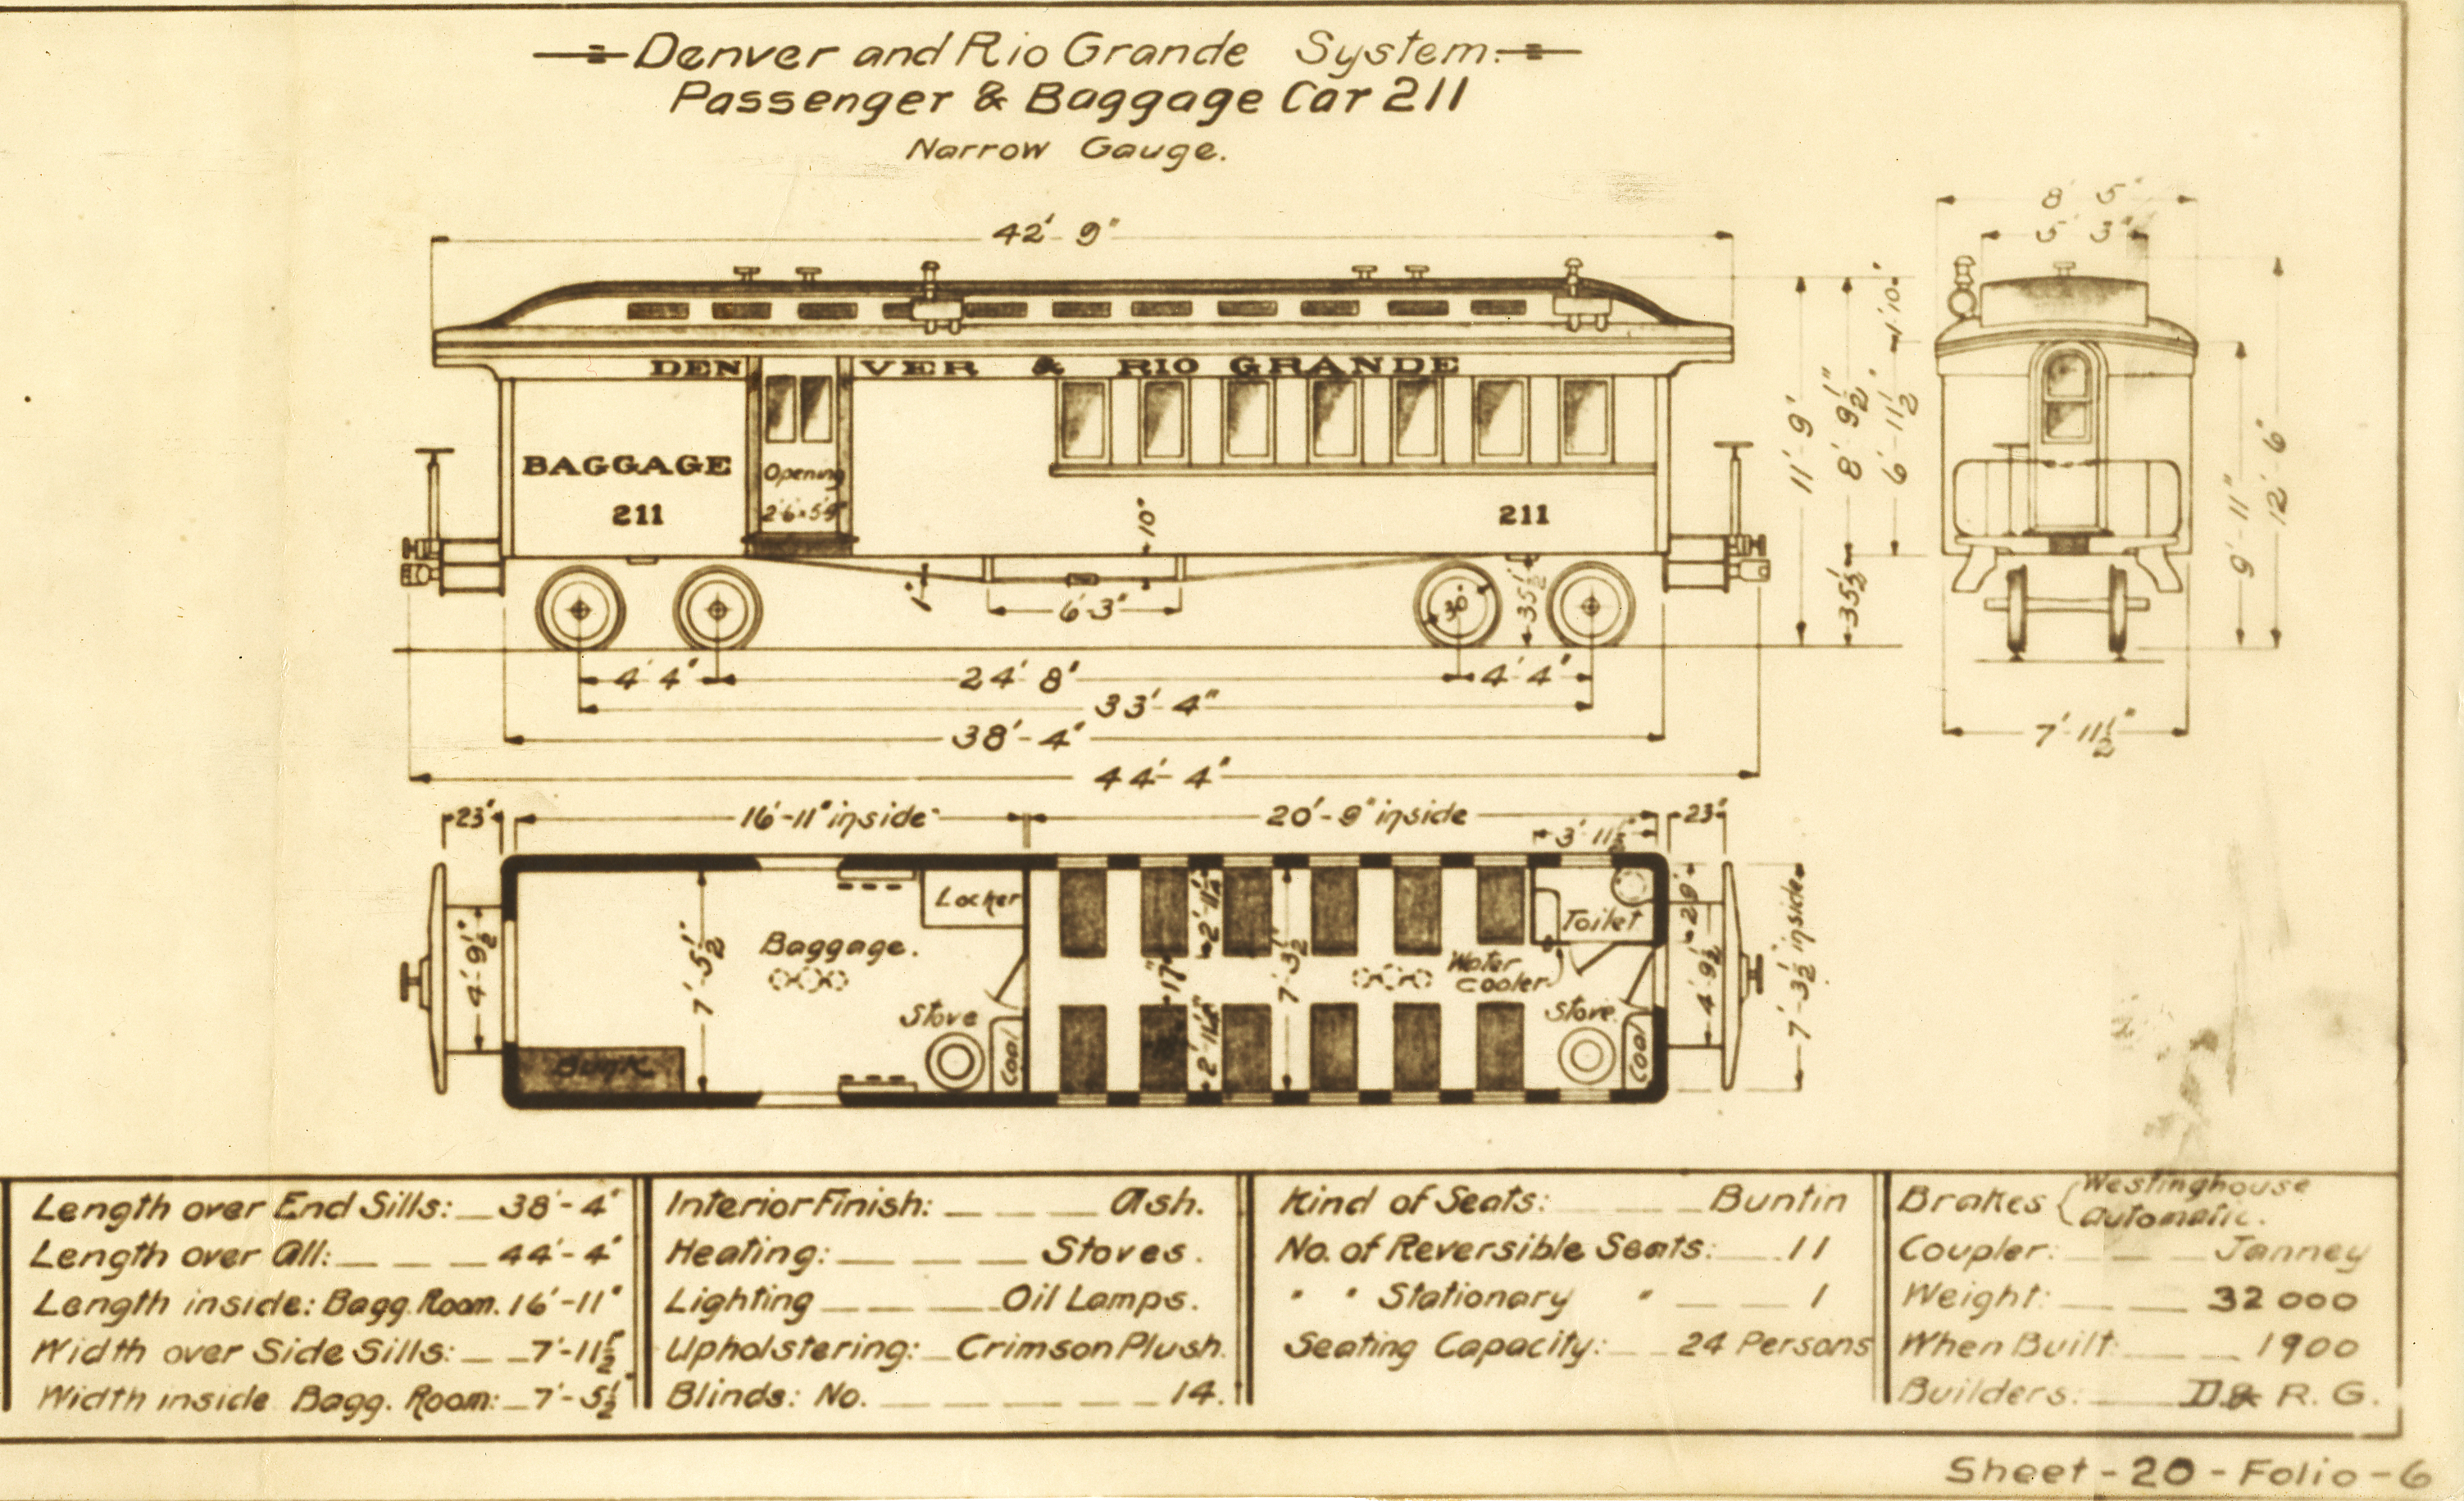 Denver and Rio Grande System.
Passenger & Baggage Car 211
Narrow Gauge.
42'-9"
8' 5"
5' 3"
DENVER & RIO GRANDE
BAGGAGE
211
Opening
2'6"x5'9"
211
10"
1"
6'-3"
30"
35½"
11'-9"
8'-9½"
35½"
1'10"
6'-11½"
9'-11"
12'-6"
7'-11½"
4'4"
24'8"
4'4"
33'-4"
38'-4"
44'-4"
23"
16'-11" inside
20'-9" inside
3'11½"
23"
4'-9½"
7'-5½"
Baggage.
Locker
Stove
Coal
Bunk
2'-11½"
17"
2'-11½"
7'-3½"
Water
Cooler
Toilet
Stove
Coal
29"
4'-9½"
7'-3½" inside
Length over End Sills: 38'-4"
Length over All: 44'-4"
Length inside: Bagg. Room. 16'-11"
Width over Side Sills: 7'-11½"
Width inside Bagg. Room: 7'-5½"
Interior Finish: Ash.
Heating: Stoves.
Lighting Oil Lamps.
Upholstering: Crimson Plush.
Blinds: No. 14.
Kind of Seats: Buntin
No. of Reversible Seats: 11
" " Stationary " 1
Seating Capacity: 24 Persons
Brakes { Westinghouse
Automatic.
Coupler: Janney
Weight: 32000
When Built: 1900
Builders: D.& R. G.
Sheet-20-Folio-6